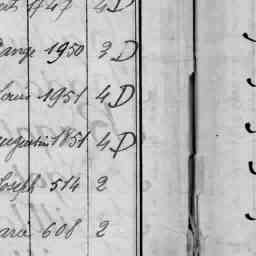 1747 4 D
ange 1950 3 D
Louis 1951 4 D
ugustin 1851 4 D
Joseph 514 2
arie 608 2